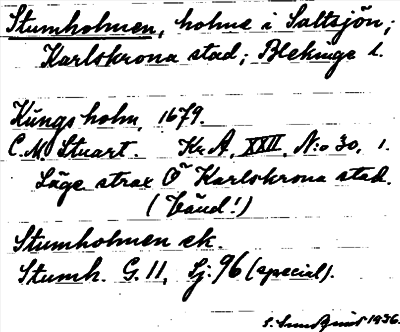 Stumholmen, holme i Saltsjön;
Karlskrona stad; Blekinge l.
Kungsholm, 1679.
C.M. Stuart. Kr.A. XXII, N:o 30, 1.
Läge strax Ö Karlskrona stad.
(Bänd!)
Stumholmen ek.
Stumh. G. 11, Sj. 96 (special).
S. 1936.